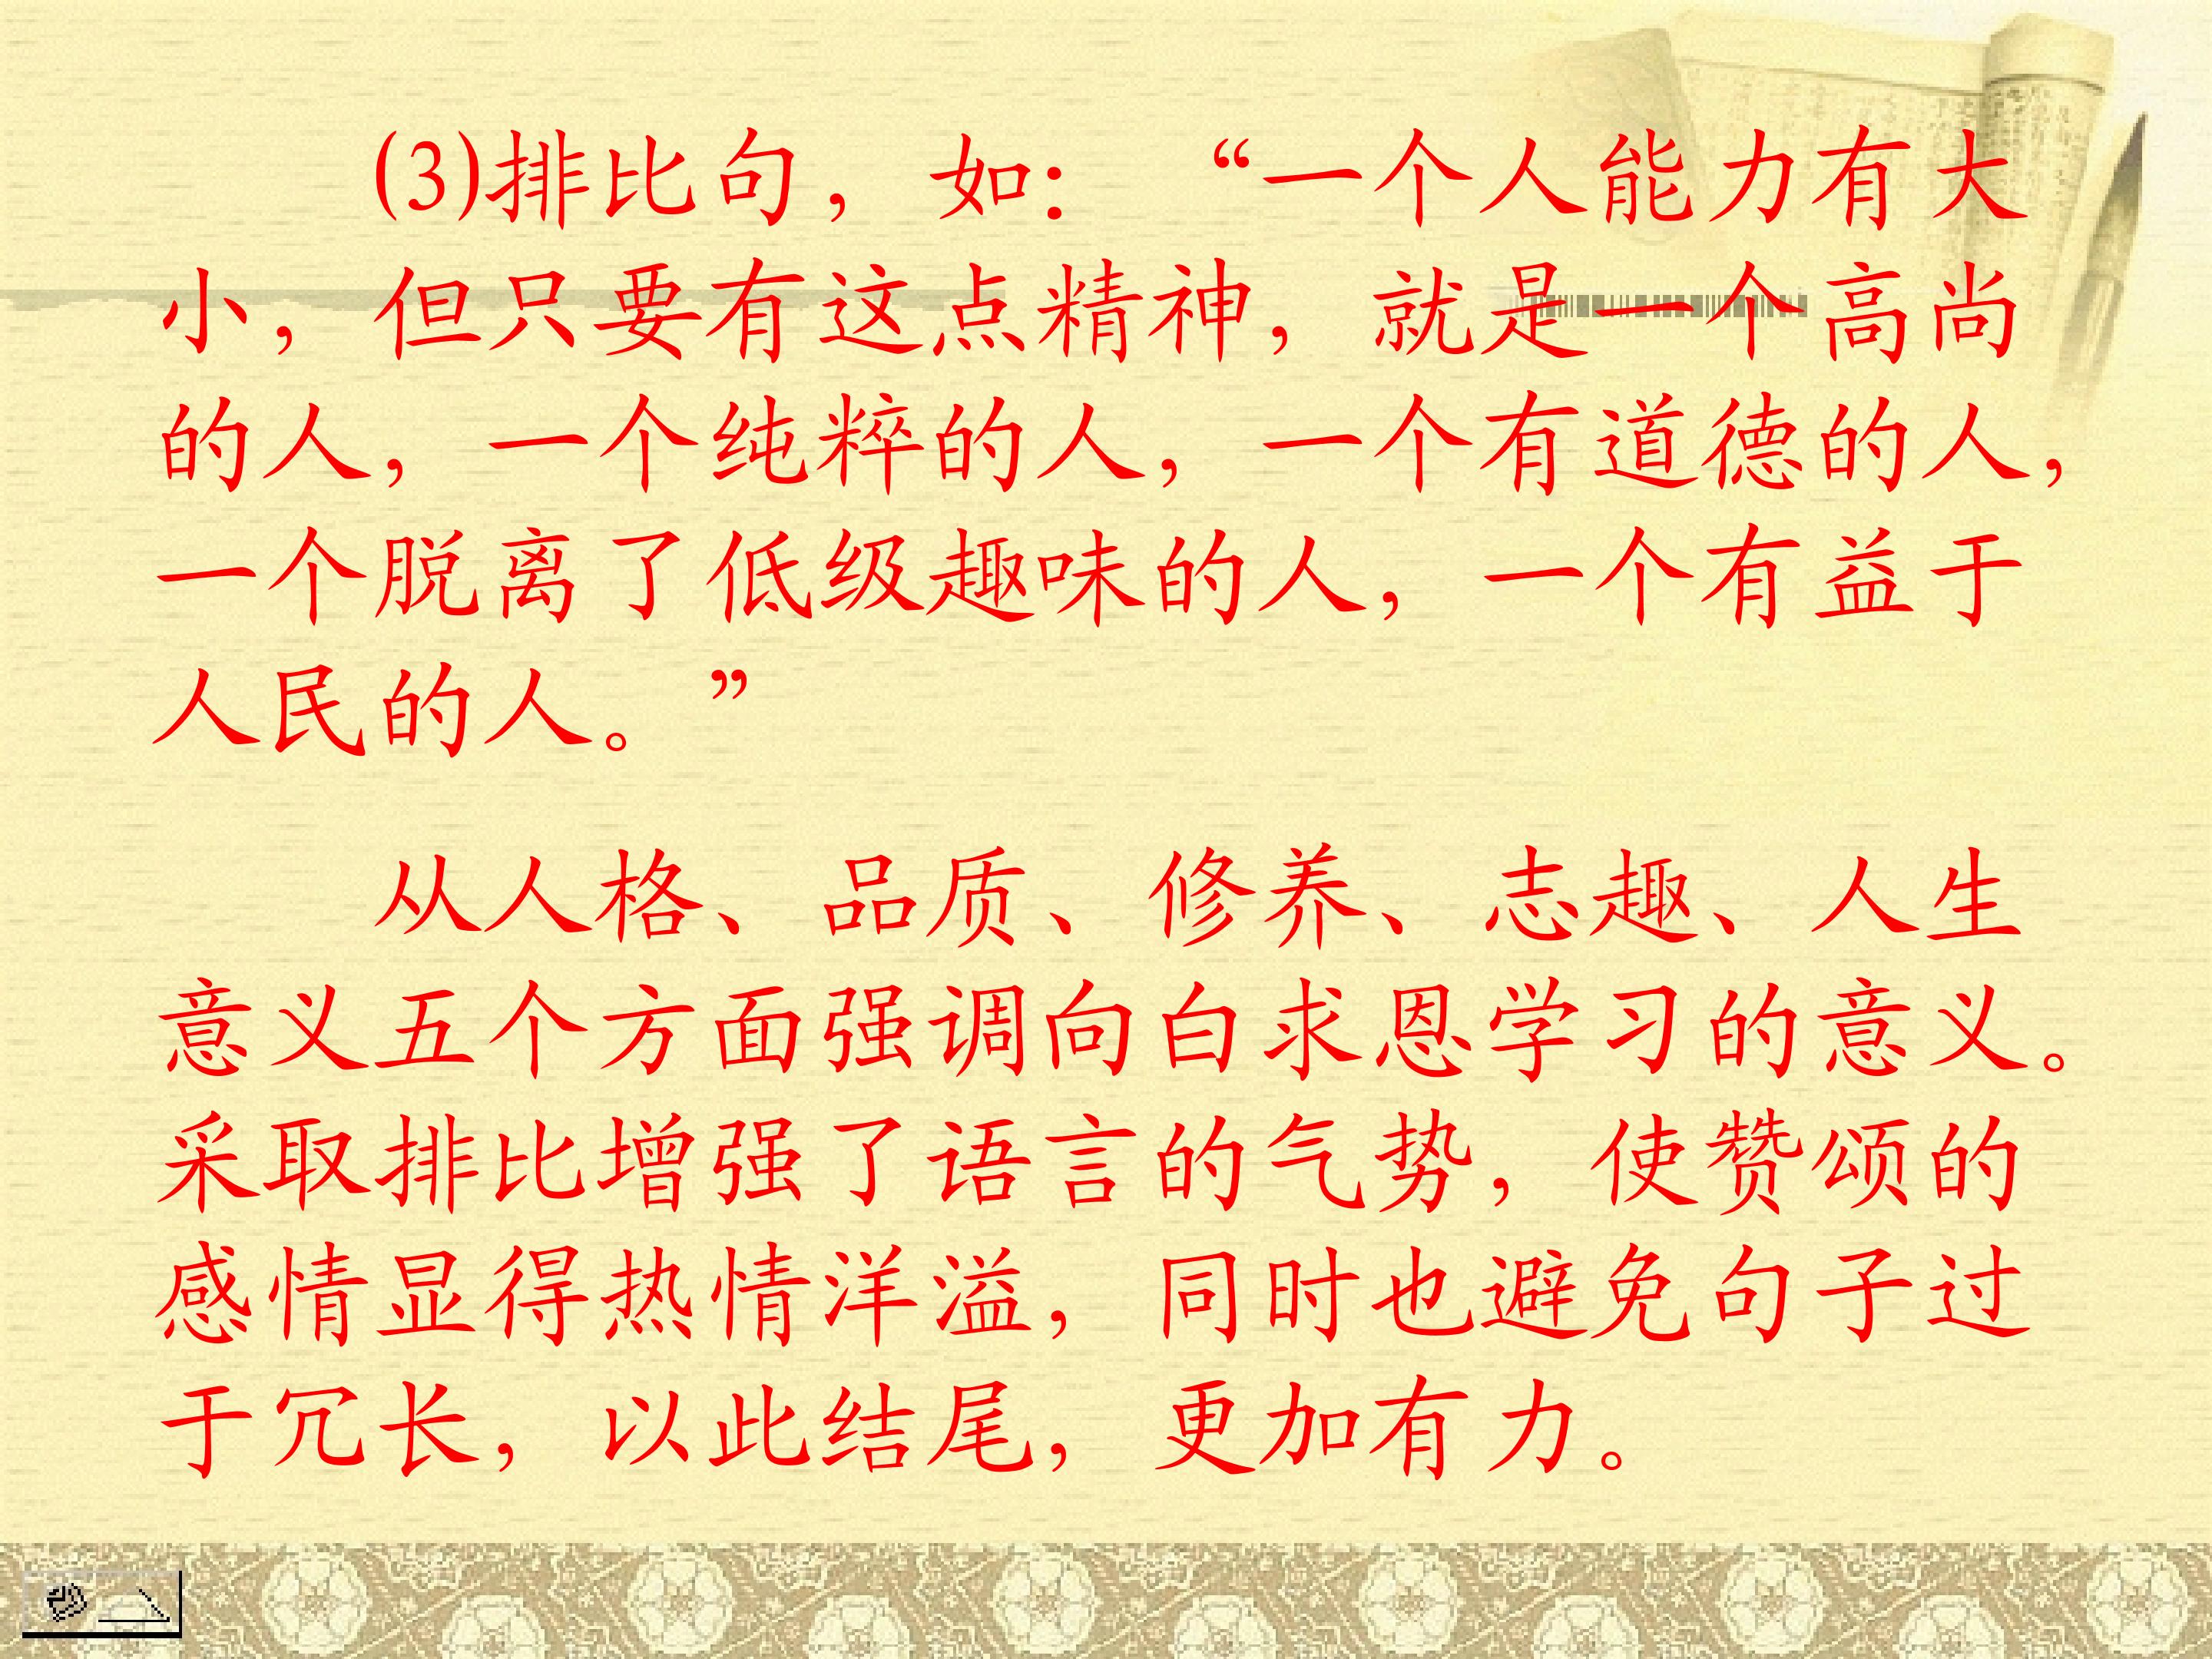 (3)排比句，如：“一个人能力有大
小，但只要有这点精神，就是一个高尚
的人，一个纯粹的人，一个有道德的人，
一个脱离了低级趣味的人，一个有益于
人民的人。”
从人格、品质、修养、志趣、人生
意义五个方面强调向白求恩学习的意义。
采取排比增强了语言的气势，使赞颂的
感情显得热情洋溢，同时也避免句子过
于冗长，以此结尾，更加有力。